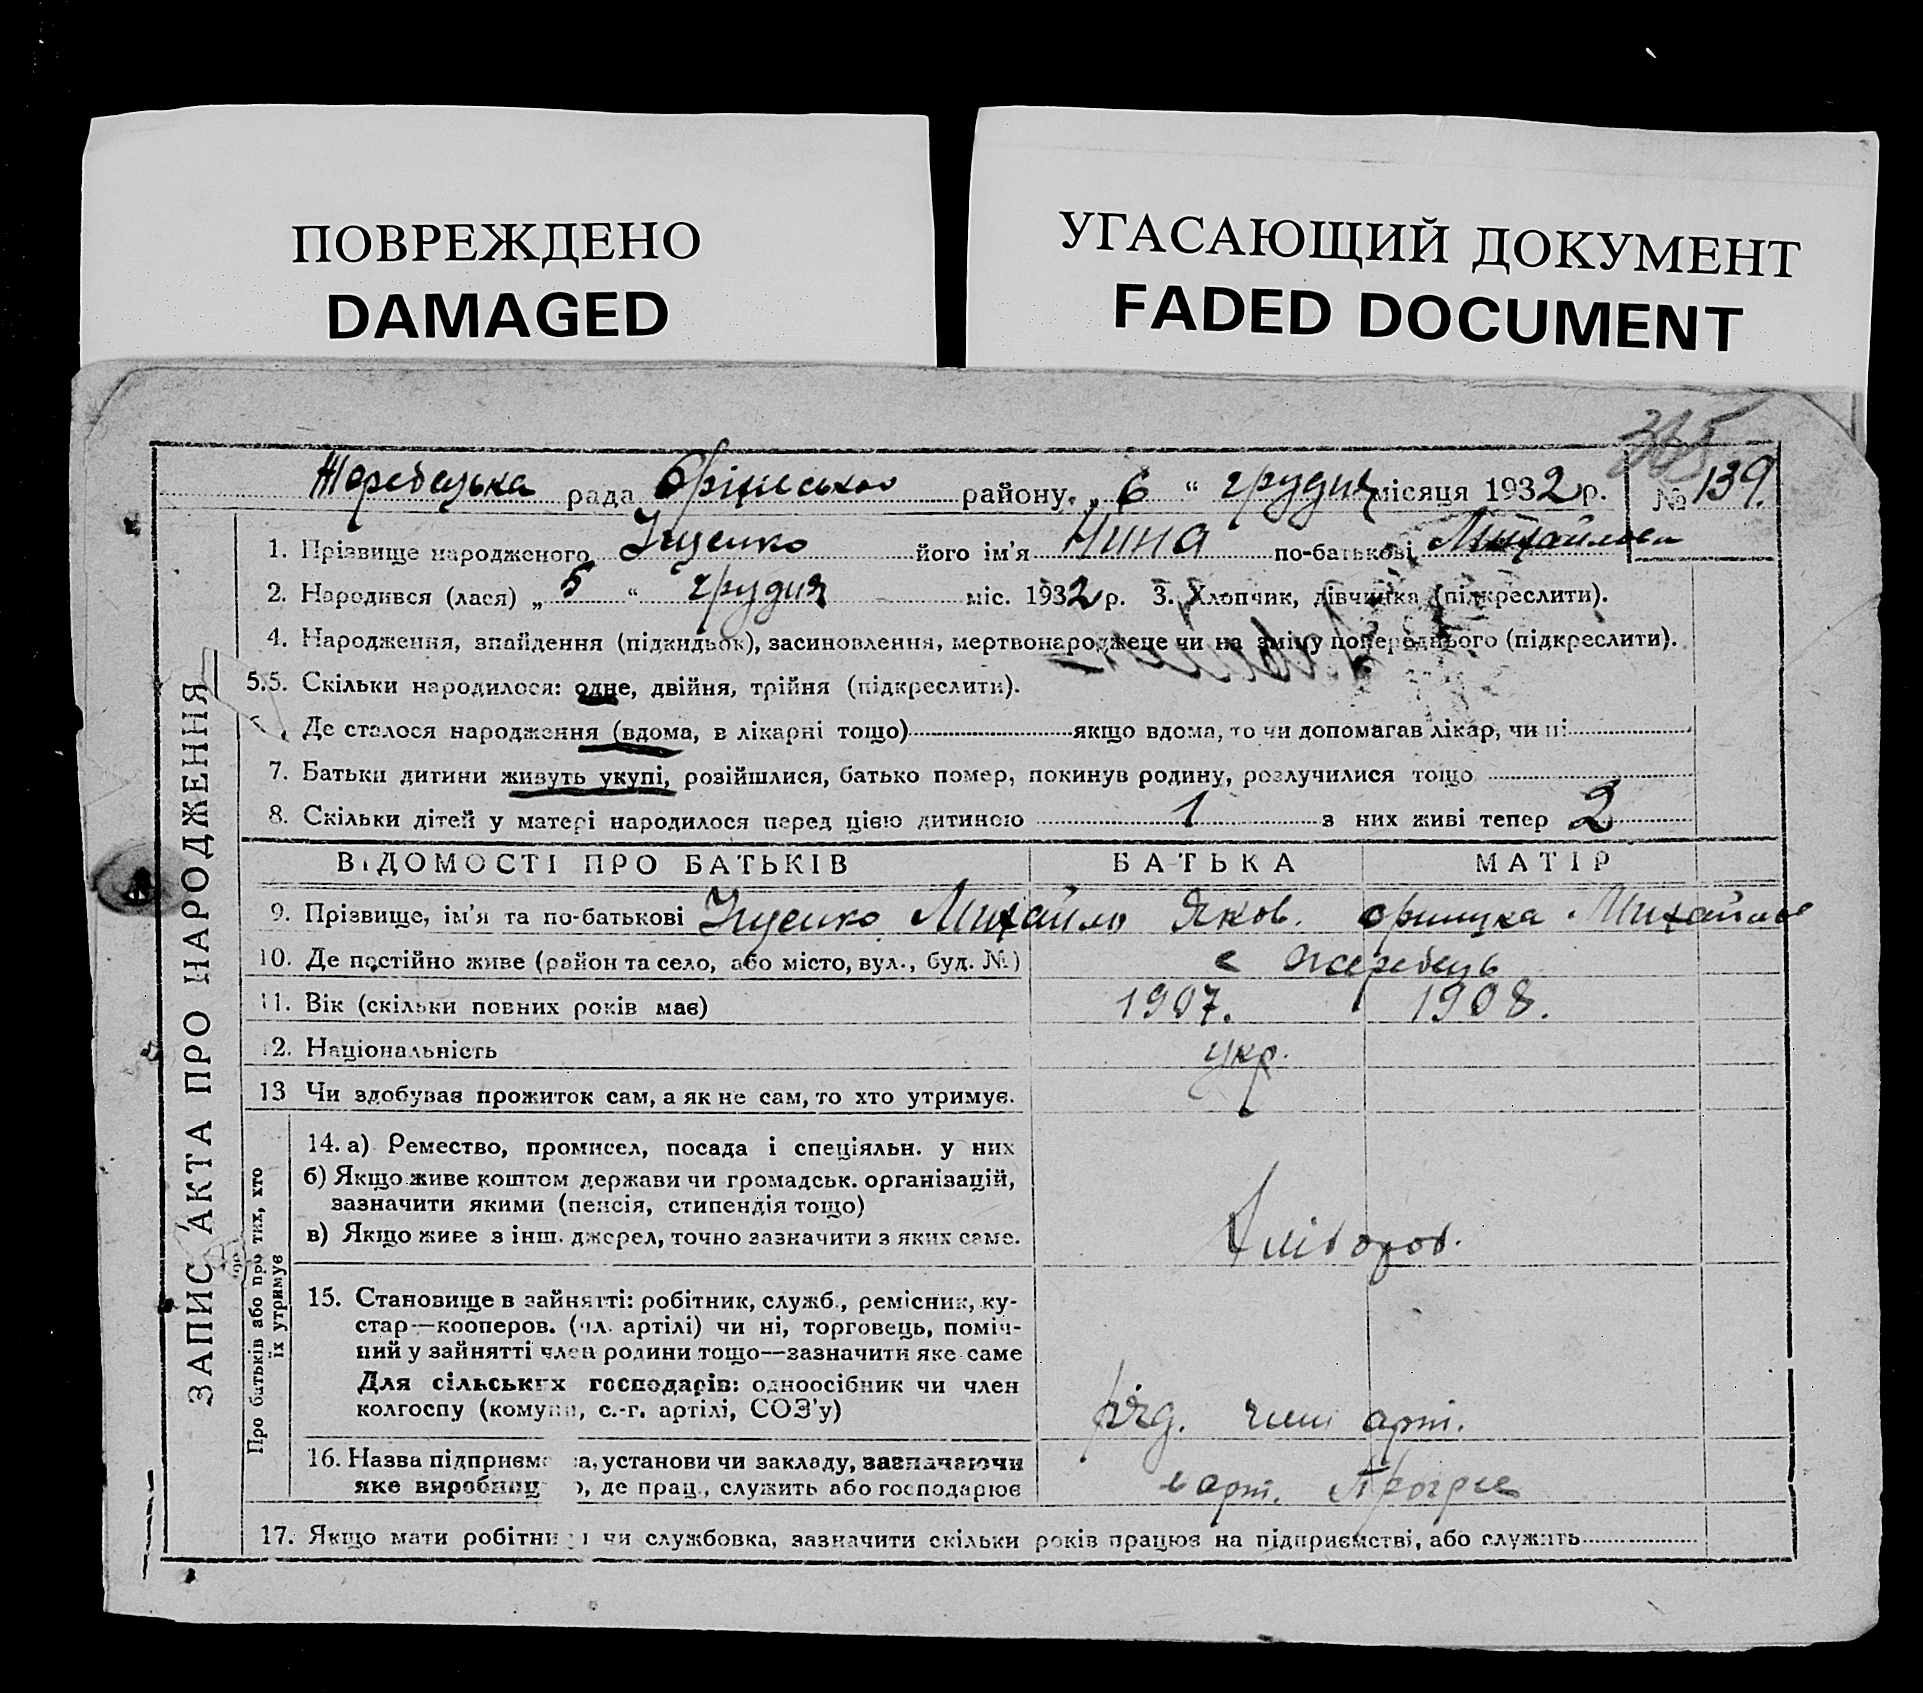 ПОВРЕЖДЕНО
DAMAGED
УГАСАЮЩИЙ ДОКУМЕНТ
FADED DOCUMENT
Жеребецька рада Оріхівського району. „ 6 “ грудня місяця 1932 р. № 139.
ЗАПИС АКТА ПРО НАРОДЖЕННЯ
1. Прізвище народженого Іщенко його ім'я Нина по-батькові Михайлови
2. Народився (лася) „ 5 “ грудня міс. 1932 р. 3. Хлопчик, дівчинка (підкреслити).
4. Народження, знайдення (підкидьок), засиновлення, мертвонароджене чи на зміну попереднього (підкреслити).
5.5. Скільки народилося: одне, двійня, трійня (підкреслити).
Де сталося народження (вдома, в лікарні тощо) якщо вдома, то чи допомагав лікар, чи ні
7. Батьки дитини живуть укупі, розійшлися, батько помер, покинув родину, розлучилися тощо
8. Скільки дітей у матері народилося перед цією дитиною 1 з них живі тепер 2
ВІДОМОСТІ ПРО БАТЬКІВ БАТЬКА МАТІР
9. Прізвище, ім'я та по-батькові Іщенко Михайло Яков. Михайлов
10. Де постійно живе (район та село, або місто, вул., буд. №) с Жеребець
11. Вік (скільки повних років має) 1907. 1908.
12. Національність укр.
13 Чи здобував прожиток сам, а як не сам, то хто утримує.
Про батьків або про тих, хто їх утримує
14. а) Ремество, промисел, посада і спеціяльн. у них
б) Якщо живе коштом держави чи громадськ. організацій,
зазначити якими (пенсія, стипендія тощо)
в) Якщо живе з інш. джерел, точно зазначити з яких саме. Хлібороб.
15. Становище в зайнятті: робітник, служб., ремісник, ку-
стар—кооперов. (чл. артілі) чи ні, торговець, поміч-
ний у зайнятті член родини тощо—зазначити яке саме
Для сільських господарів: одноосібник чи член
колгоспу (комуни, с.-г. артілі, СОЗ'у) арт.
16. Назва підприємства, установи чи закладу, зазначаючи
яке виробництво, де прац., служить або господарює арт. Прогрес
17. Якщо мати робітниця чи службовка, зазначити скільки років працює на підприємстві, або служить